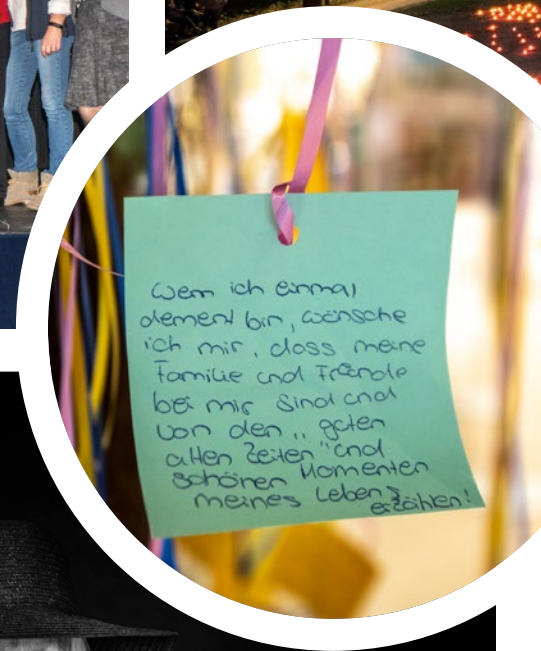 Wenn ich einmal
dement bin, wünsche
ich mir, dass meine
Familie und Freunde
bei mir sind und
von den „guten
alten Zeiten" und
schönen Momenten
meines Lebens
erzählen!